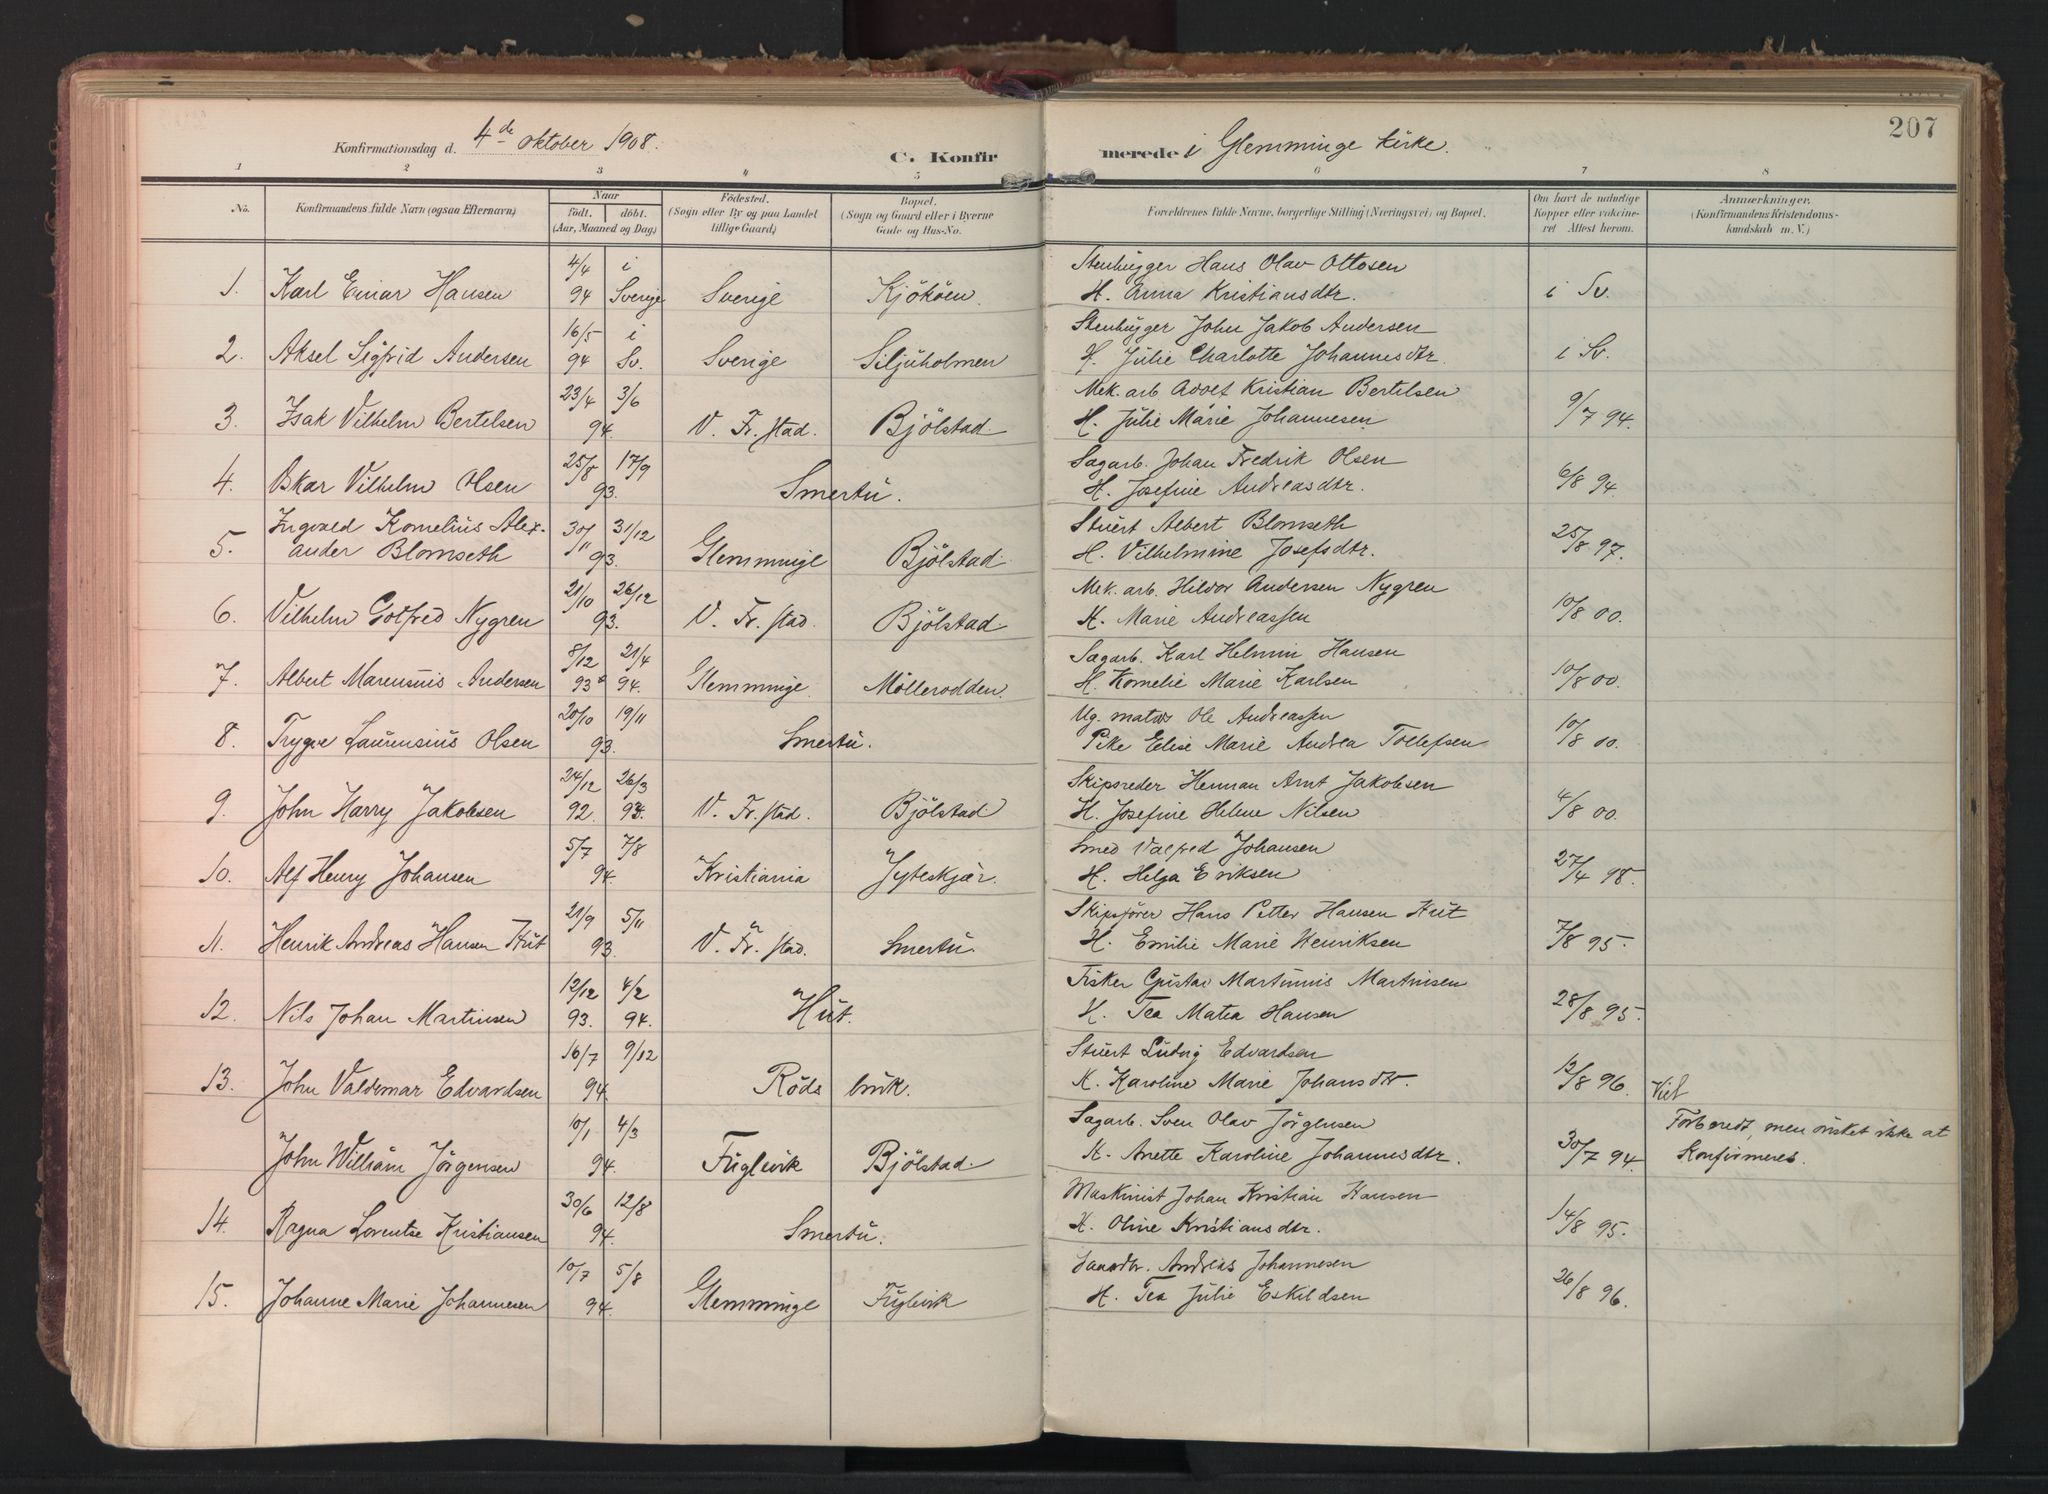 207
Konfirmationsdag d. 4de oktober 1908. C. Konfirmerede i Glemminge kirke.
1 2 3 4 5 6 7 8
No. Konfirmandens fulde Navn (ogsaa Efternavn). Naar födt. döbt. (Aar, Maaned og Dag.) Födested. (Sogn eller By og paa Landet tillige Gaard.) Bopæl. (Sogn og Gaard eller i Byerne Gade og Hus-No. Forældrenes fulde Navne, borgerlige Stilling (Næringsvei) og Bopæl. Om havt de naturlige Kopper eller vakcineret Attest herom. Anmærkninger. (Konfirmandens Kristendomskundskab m. V.)
4/4 i Stenhugger Hans Olav Ottosen
1. Karl Einar Hansen 94 Sverige Sverige Kjököen. H. Anna Kristiansdtr. i Sv.
16/5 i Stenhugger John Jakob Andersen
2. Aksel Sigfrid Andersen 94 Sv. Sverige Siljuholmen H. Julie Charlotte Johannesdtr. i Sv.
23/4 3/6 Mek. arb Adolf Kristian Bertelsen
3. Isak Vilhelm Bertelsen 94. V. Fr. stad. Bjölstad. H. Julie Marie Johannesen. 9/7 94.
25/8 17/9 Sagarb. Johan Fredrik Olsen
4. Oskar Vilhelm Olsen 93. Smertu. H. Josefine Andreasdtr. 6/8 94.
Ingvald Kornelius Alex- 30/11 31/12 Stuert Albert Blomseth
5. ander Blomseth 93. Glemminge Bjölstad. H. Vilhelmine Josefsdtr. 25/8 97.
21/10 26/12 Mek. arb. Hildor Andersen Nygren
6. Vilhelm Gotfred Nygren 93. V. Fr. stad. Bjölstad. H. Marie Andreassen 10/8 00.
8/12 21/4 Sagarb. Karl Helmin Hansen
7. Albert Marensius Andersen 93 94. Glemminge. Möllerodden. H. Kornelie Marie Karlsen 10/8 00.
20/10 19/11 Ug. matros Ole Andreassen
8. Trygve Laurensius Olsen 93. Smertu. Pike Elise Marie Andrea Tollefsen 10/8 00.
24/12 26/3 Skipsreder Herman Arnt Jakobsen
9. John Harry Jakobsen 92. 93. V. Fr. stad. Bjölstad H. Josefine Helene Nilsen 4/8 00.
5/7 7/8 Smed Valfred Johansen
10. Alf Henry Johansen 94. Kristiania Jyteskjær. H. Helga Eriksen 27/4 98.
21/9 5/11 Skipsförer Hans Petter Hansen Hut
11. Henrik Andreas Hansen Hut 93. V. Fr. stad. Smertu. H. Emilie Marie Henriksen 7/8 95.
12/12 4/2 Fisker Gustav Martinius Martinsen
12. Nils Johan Martinsen 93. 94. Hut. H. Tea Matea Hansen 28/8 95.
16/7 9/12 Stuert Ludvig Edvardsen
13. John Valdemar Edvardsen 94. Röds bruk. H. Karoline Marie Johansdtr. 12/8 96.
10/1 4/3 Sagarb. Sven Olav Jörgensen Forberedt, men önsket ikke at
John William Jörgensen 94. Fuglevik Bjölstad. H. Anette Karoline Johannesdtr. 30/7 94. Konfirmeres.
30/6 12/8 Maskinist Johan Kristian Hansen
14. Ragna Lorentse Kristiansen 94. Smertu. H. Oline Kristiansdtr. 14/8 95.
10/7 5/8 Andreas Johannesen
15. Johanne Marie Johannesen 94. Glemminge Fuglevik H. Tea Julie Eskildsen 26/8 96.